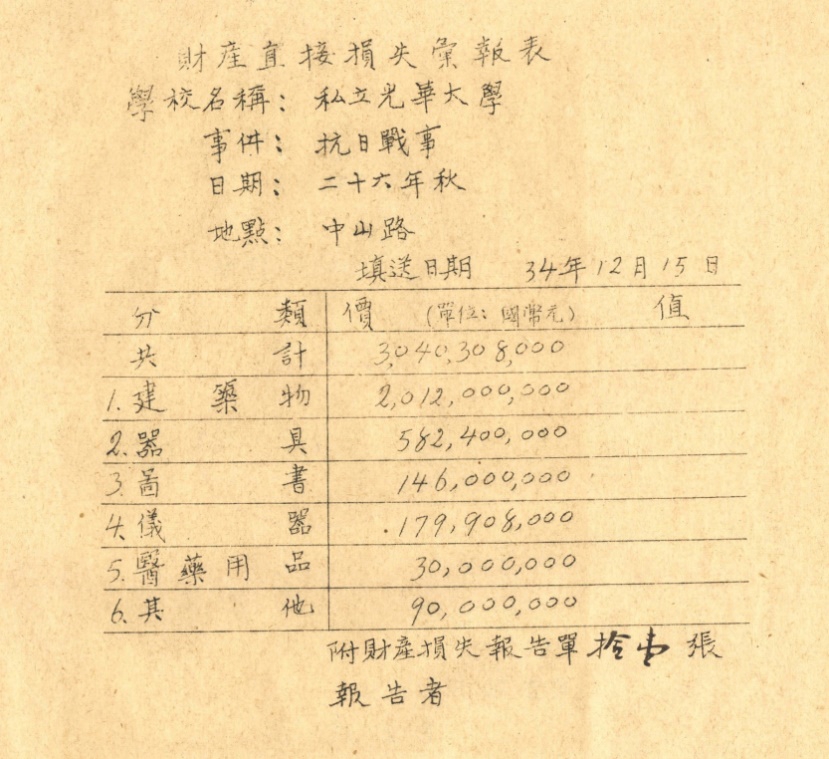 財產直接損失彙報表
學校名稱： 私立光華大學
事件： 抗日戰事
日期： 二十六年秋
地點： 中山路
填送日期 34年12月15日
分類 價 (單位：國幣元) 值
共計 3,040,308,000
1.建築物 2,012,000,000
2.器具 582,400,000
3.啚書 146,000,000
4.儀器 179,908,000
5.醫藥用品 30,000,000
6.其他 90,000,000
附財產損失報告單拾壹張
報告者